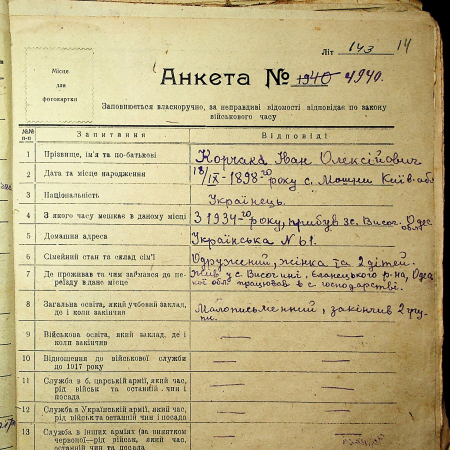 Літ 143 14
Місце
для
фотокартки
Анкета № 1940 4940.
Заповнюється власноручно, за неправдиві відомості відповідає по закону
військового часу
№№ п-п Запитання Відповіді
1 Прізвище, ім'я та по-батькові Корчака Іван Олексійович
2 Дата та місце народження 18/IX-1898-го року с. Мошни Київ. обл
3 Національність Українець
4 З якого часу мешкає в даному місці З 1934-го року, прибув зс. Висог. Одес
обл.
5 Домашня адреса Українська № 61.
6 Сімейний стан та склад сім'ї Одружений, жінка та 2 дітей.
7 Де проживав та чим займався до пе-
реїзду в дане місце
Жив у с. Височині, Єланецького р-на, Одесь
кої обл. працював в с. господарстві.
8 Загальна освіта, який учбовий заклад,
де і коли закінчив
Малописьменний, закінчив 2 гру-
пи.
9 Військова освіта, який заклад, де і
коли закінчив
10 Відношення до військової служби
до 1917 року
11 Служба в б. царській армії, який час,
рід військ та останній чин і
посада
12 Служба в Українській армії, який час,
рід військ та останній чин і посада
13 Служба в інших арміях (за винятком
червоної—рід військ, який час,
останній чин та посада